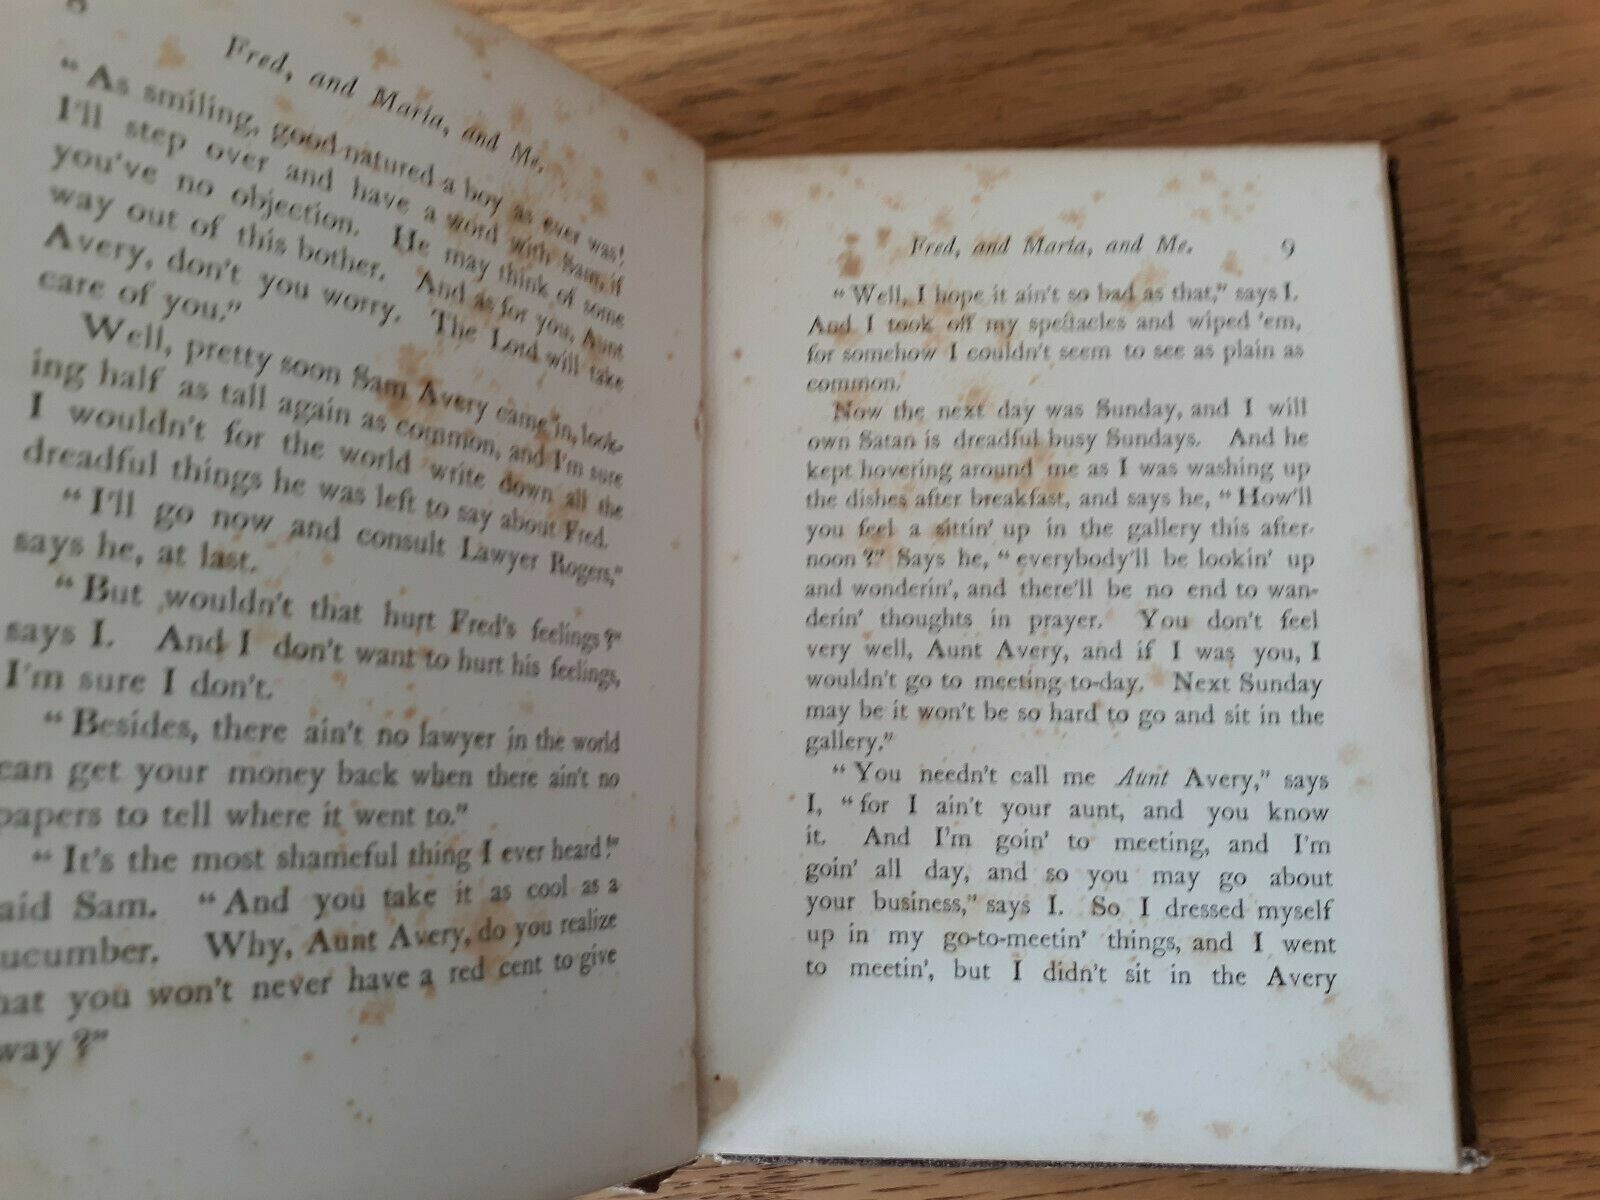 8
Fred, and Maria, and Me.
"As smiling, good-natured a boy as ever was!
I'll step over and have a word with Sam, if
you've no objection. He may think of some
way out of this bother. And as for you, Aunt
Avery, don't you worry. The Lord will take
care of you."
Well, pretty soon Sam Avery came in, look-
ing half as tall again as common, and I'm sure
I wouldn't for the world write down all the
dreadful things he was left to say about Fred.
"I'll go now and consult Lawyer Rogers,"
says he, at last.
"But wouldn't that hurt Fred's feelings?"
says I. And I don't want to hurt his feelings,
I'm sure I don't.
"Besides, there ain't no lawyer in the world
can get your money back when there ain't no
papers to tell where it went to."
"It's the most shameful thing I ever heard!"
aid Sam. "And you take it as cool as a
ucumber. Why, Aunt Avery, do you realize
hat you won't never have a red cent to give
way?"
Fred, and Maria, and Me. 9
"Well, I hope it ain't so bad as that," says I.
And I took off my spectacles and wiped 'em,
for somehow I couldn't seem to see as plain as
common.
Now the next day was Sunday, and I will
own Satan is dreadful busy Sundays. And he
kept hovering around me as I was washing up
the dishes after breakfast, and says he, "How'll
you feel a sittin' up in the gallery this after-
noon?" Says he, "everybody'll be lookin' up
and wonderin', and there'll be no end to wan-
derin' thoughts in prayer. You don't feel
very well, Aunt Avery, and if I was you, I
wouldn't go to meeting to-day. Next Sunday
may be it won't be so hard to go and sit in the
gallery."
"You needn't call me Aunt Avery," says
I, "for I ain't your aunt, and you know
it. And I'm goin' to meeting, and I'm
goin' all day, and so you may go about
your business," says I. So I dressed myself
up in my go-to-meetin' things, and I went
to meetin', but I didn't sit in the Avery